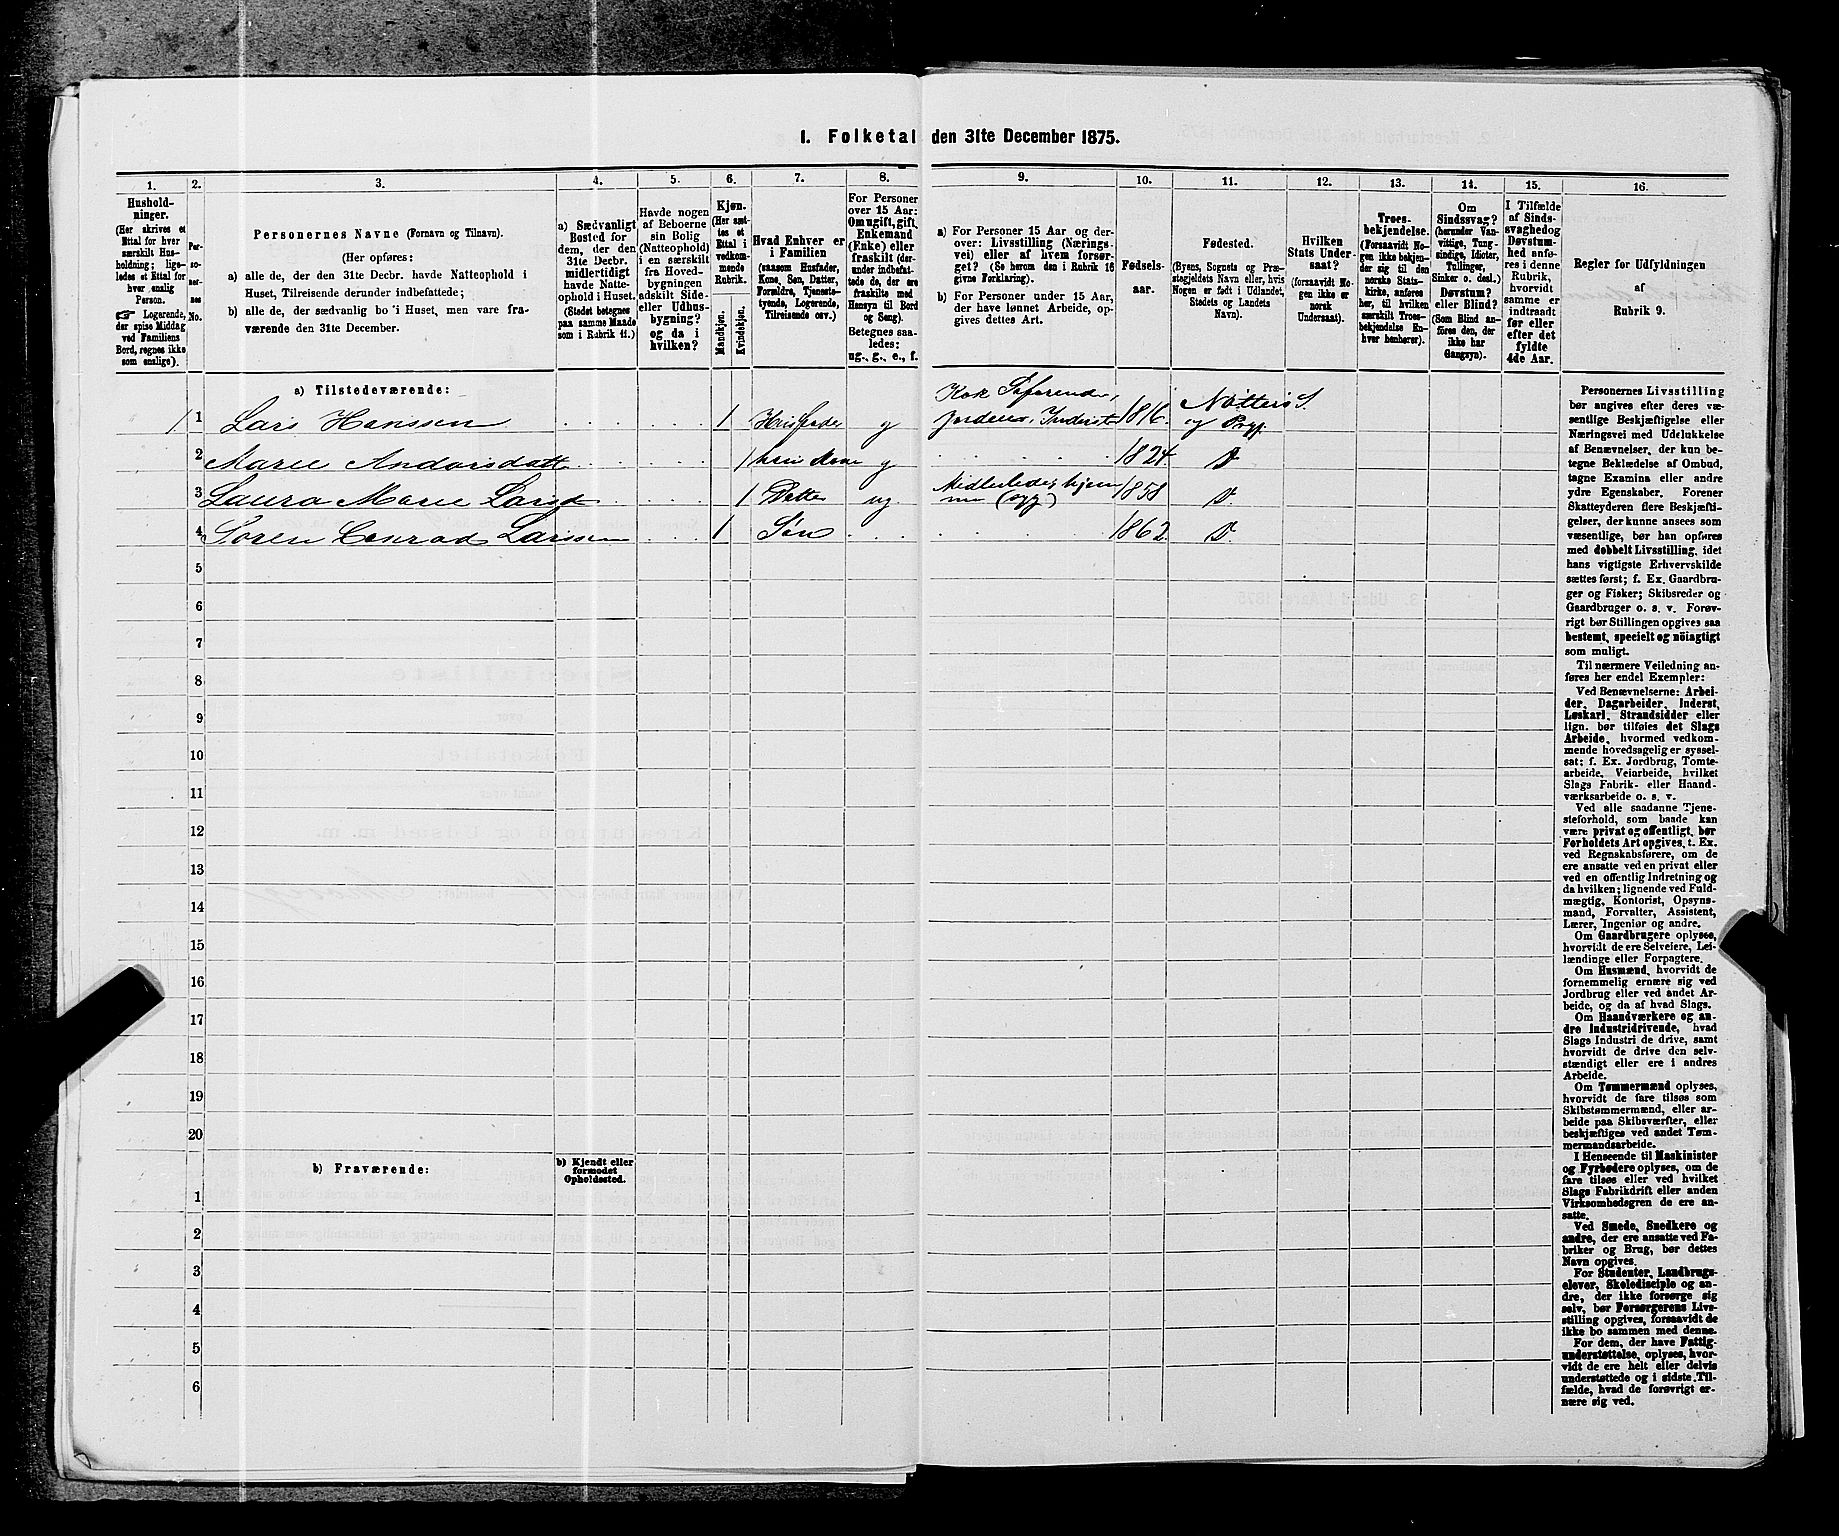 1. Folketal den 31te December 1875.
1. 2. 3. 4. 5. 6. 7. 8. 9. 10. 11. 12. 13. 14. 15. 16.
Hushold-
ninger.
(Her skrives et
Ettal for hver
særskilt Hus-
holdning; lige-
ledes et Ettal for
hver enslig
Person.
☞ Logerende,
der spise Middag
ved Familiens
Bord, regnes ikke
som enslige).
Per-
so-
ner-
nes
No.
Personernes Navne (Fornavn og Tilnavn).
(Her opføres:
a) alle de, der den 31te Decbr. havde Natteophold i
Huset, Tilreisende derunder indbefattede;
b) alle de, der sædvanlig bo i Huset, men vare fra-
værende den 31te December.
a) Sædvanligt
Bosted for
dem, der den
31te Decbr.
midlertidigt
havde Natte-
ophold i Huset.
(Stedet betegnes
paa samme Maade
som i Rubrik 11.)
Havde nogen
af Beboerne
sin Bolig
(Natteophold)
i en særskilt
fra Hoved-
bygningen
adskilt Side-
eller Udhus-
bygning?
og da i
hvilken?
Kjøn.
(Her sæt-
tes et
Ettal i
vedkom-
mende
Rubrik.
Mandkjøn.
Kvindekjøn.
Hvad Enhver er
i Familien
(saasom Husfader,
Kone, Søn, Datter,
Forældre, Tjeneste-
tyende, Logerende,
Tilreisende osv.)
For Personer
over 15 Aar:
Om ugift, gift,
Enkemand
(Enke) eller
fraskilt (der-
under indbefat-
tede de, der ere
fraskilte med
Hensyn til Bord
og Seng).
Betegnes saa-
ledes:
ug., g., e., f.
a) For Personer 15 Aar og der-
over: Livsstilling (Nærings-
vei) eller af hvem forsør-
get? (Se herom den i Rubrik 16
givne Forklaring).
b) For Personer under 15 Aar,
der have lønnet Arbeide, op-
gives dettes Art.
Fødsels-
aar.
Fødested.
(Byens, Sognets og Præ-
stegjeldets Navn eller, hvis
Nogen er født i Udlandet,
Stedets og Landets
Navn).
Hvilken
Stats Under-
saat?
(forsaavidt No-
gen ikke er
norsk
Undersaat).
Troes-
bekjendelse.
(Forsaavidt No-
gen ikke bekjen-
der sig til den
norske Stats-
kirke, anføres
her, til hvilken
særskilt Troes-
bekjendelse En-
hver henhører).
Om
Sindssvag?
(herunder Van-
vittige, Tung-
sindige, Idioter,
Tullinger,
Sinker o. desl.)
Døvstum?
eller Blind?
(Som Blind an-
føres den, der
ikke har
Gangsyn).
I Tilfælde
af Sinds-
svaghed og
Døvstum-
hed anfø-
res i denne
Rubrik,
hvorvidt
samme er
indtraadt
før eller
efter det
fyldte
4de Aar.
Regler for Udfyldningen
af
Rubrik 9.
a) Tilstedeværende:
1 1 Lars Hanssen 1 Husfader g Kok Søfarende, Jordeier, Inderst 1816. Nøtterø S. og Prgj.
2 Marie Andersdatt 1 hans Kone g 1824. D
3 Laura Marie Larsd 1 Datter ug 1858 D.
4 Søren Conrad Larssen 1 Søn 1862. D.
5
6
7
8
9
10
11
12
13
14
15
16
17
18
19
20
b) Fraværende:
b) Kjendt eller
formodet
Opholdssted.
1
2
3
4
5
6
Personernes Livsstilling
bør angives efter deres væ-
sentlige Beskjæftigelse eller
Næringsvei med Udelukkelse
af Benævnelser, der kun be-
tegne Beklædelse af Ombud,
tagne Examina eller andre
ydre Egenskaber. Forener
Skatteyderen flere Beskjæfti-
gelser, der kunne ansees som
væsentlige, bør han opføres
med dobbelt Livsstilling, idet
hans vigtigste Erhvervskilde
sættes først; f. Ex. Gaardbru-
ger og Fisker; Skibsreder og
Gaardbruger o. s. v. Forøv-
rigt bør Stillingen opgives saa
bestemt, specielt og nöiagtigt
som muligt.
Til nærmere Veiledning an-
føres her endel Exempler:
Ved Benævnelserne: Arbei-
der, Dagarbeider, Inderst,
Løskarl, Strandsidder eller
lign. bør tilføies det Slags
Arbeide, hvormed vedkom-
mende hovedsagelig er syssel-
sat; f. Ex. Jordbrug, Tomte-
arbeide, Veiarbeide, hvilket
Slags Fabrik- eller Haand-
værksarbeide o. s. v.
Ved alle saadanne Tjene-
steforhold, som baade kan
være privat og offentligt, bør
Forholdets Art opgives, t. Ex.
ved Regnskabsførere, om de
ere ansatte ved en privat eller
ved en offentlig Indretning og
da hvilken; lignende ved Fuld-
mægtig, Kontorist, Opsyns-
mand, Forvalter, Assistent,
Lærer, Ingeniør og andre.
Om Gaardbrugere oplyses,
hvorvidt de ere Selveiere, Lei-
lændinge eller Forpagtere.
Om Husmænd, hvorvidt de
fornemmelig ernære sig ved
Jordbrug eller ved andet Ar-
beide, og da af hvad Slags.
Om Haandværkere og an-
dre Industridrivende, hvad
Slags Industri de drive, samt
hvorvidt de drive den selv-
stændigt eller ere i andres
Arbeide.
Om Tømmermænd oplyses,
hvorvidt de fare tilsøs som
Skibstømmermænd, eller ar-
beide paa Skibsværfter, eller
beskjæftiges ved andet Tøm-
mermandsarbeide.
I Henseende til Maskinister
og Fyrbødere oplyses, om de
fare tilsøs eller ved hvilket
Slags Fabrikdrift eller anden
Virksomhedsgren de ere an-
satte.
Ved Smede, Snedkere og
andre, der ere ansatte ved Fa-
briker og Brug, bør dettes
Navn opgives.
For Studenter, Landbrugs-
elever, Skoledisciple og an-
dre, der ikke forsørge sig
selv, bør Forsørgerens Livs-
stilling opgives, forsaavidt de
ikke bo sammen med denne.
For dem, der have Fattig-
understøttelse, oplyses, hvor-
vidt de ere helt eller delvis
understøttede og i sidste Til-
fælde, hvad de forøvrigt er-
nære sig ved.